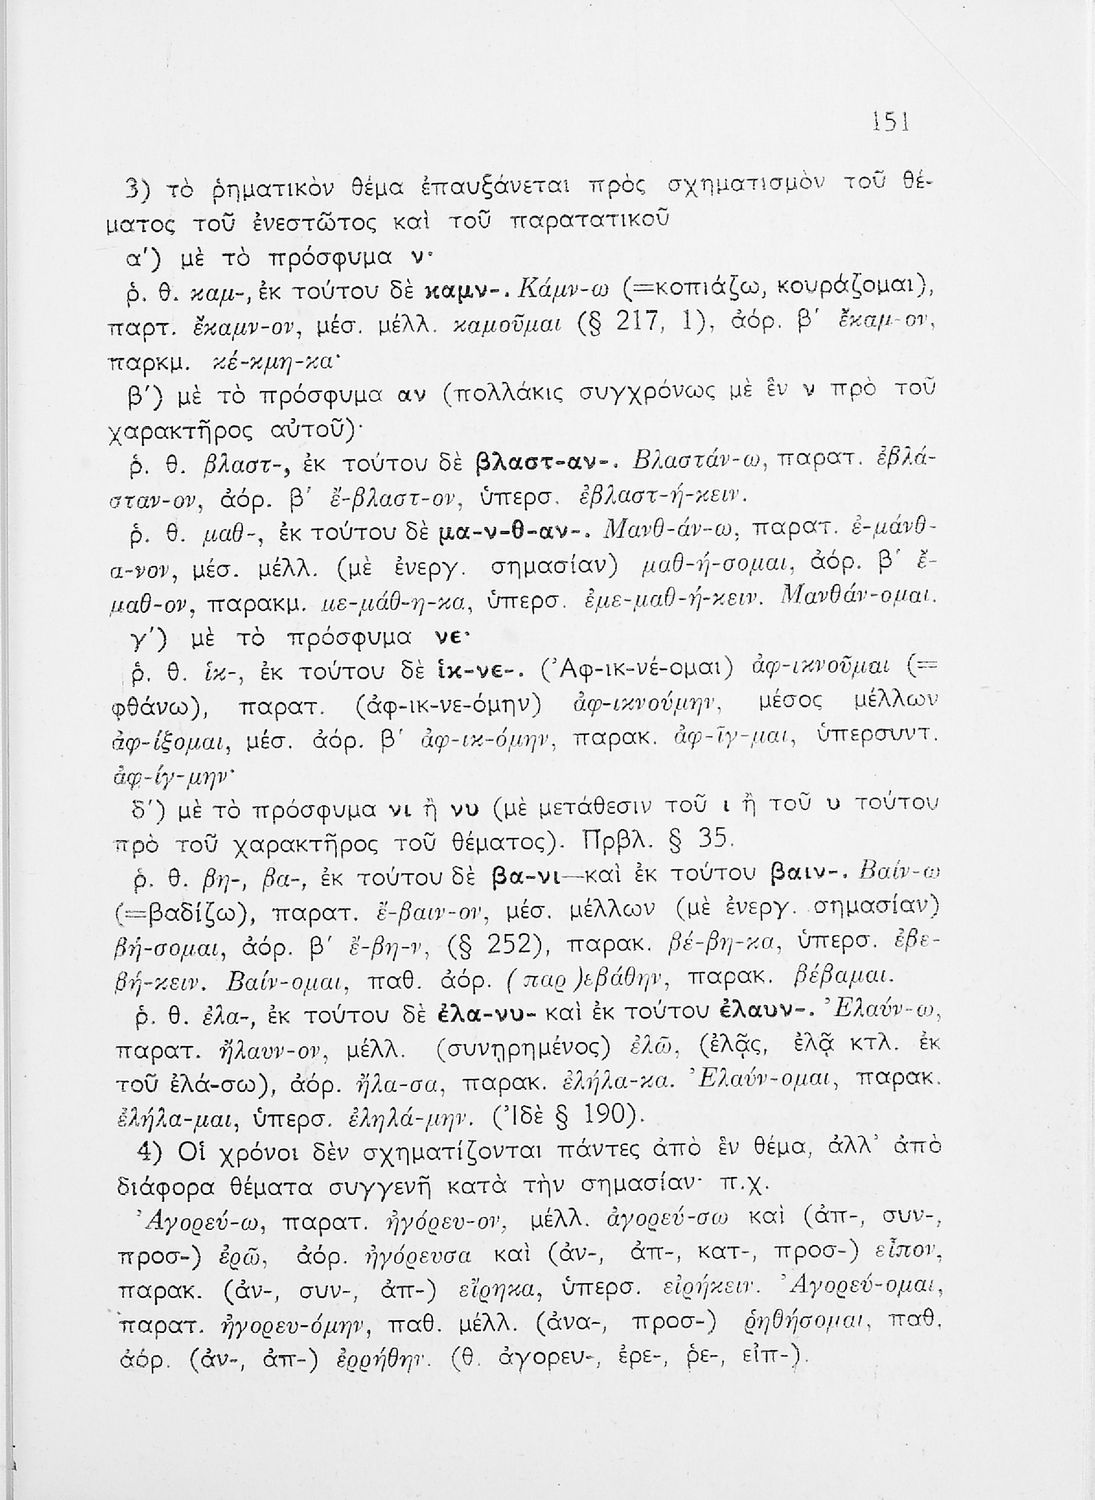 151
3) τὸ ῥηματικὸν θέμα ἐπαυξάνεται πρὸς σχηματισμὸν τοῦ θέ-
ματος τοῦ ἐνεστῶτος καὶ τοῦ παρατατικοῦ
α΄) μὲ τὸ πρόσφυμα ν·
ῥ. θ. καμ-, ἐκ τούτου δὲ καμν-. Κάμν-ω (=κοπιάζω, κουράζομαι),
παρτ. ἔκαμν-ον, μέσ. μέλλ. καμοῦμαι (§ 217, 1), ἀόρ. β΄ ἔκαμ-ον,
παρκμ. κέ-κμη-κα·
β΄) μὲ τὸ πρόσφυμα αν (πολλάκις συγχρόνως μὲ ἓν ν πρὸ τοῦ
χαρακτῆρος αὐτοῦ)·
ῥ. θ. βλαστ-, ἐκ τούτου δὲ βλαστ-αν-. Βλαστάν-ω, παρατ. ἐβλά-
σταν-ον, ἀόρ. β΄ ἔ-βλαστ-ον, ὑπερσ. ἐβλαστ-ή-κειν.
ῥ. θ. μαθ-, ἐκ τούτου δὲ μα-ν-θ-αν-. Μανθ-άν-ω, παρατ. ἐ-μάνθ-
α-νον, μέσ. μέλλ. (μὲ ἐνεργ. σημασίαν) μαθ-ή-σομαι, ἀόρ. β΄ ἔ-
μαθ-ον, παρακμ. με-μάθ-η-κα, ὑπερσ. ἐμε-μαθ-ή-κειν. Μανθάν-ομαι.
γ΄) μὲ τὸ πρόσφυμα νε·
ῥ. θ. ἱκ-, ἐκ τούτου δὲ ἱκ-νε-. (Ἀφ-ικ-νέ-ομαι) ἀφ-ικνοῦμαι (=
φθάνω), παρατ. (ἀφ-ικ-νε-όμην) ἀφ-ικνούμην, μέσος μέλλων
ἀφ-ίξομαι, μέσ. ἀόρ. β΄ ἀφ-ικ-όμην, παρακ. ἀφ-ῖγ-μαι, ὑπερσυντ.
ἀφ-ίγ-μην·
δ΄) μὲ τὸ πρόσφυμα νι ἢ νυ (μὲ μετάθεσιν τοῦ ι ἢ τοῦ υ τούτου
πρὸ τοῦ χαρακτῆρος τοῦ θέματος). Πρβλ. § 35.
ῥ. θ. βη-, βα-, ἐκ τούτου δὲ βα-νι—καὶ ἐκ τούτου βαιν-. Βαίν-ω
(=βαδίζω), παρατ. ἔ-βαιν-ον, μέσ. μέλλων (μὲ ἐνεργ. σημασίαν)
βή-σομαι, ἀόρ. β΄ ἔ-βη-ν, (§ 252), παρακ. βέ-βη-κα, ὑπερσ. ἐβε-
βή-κειν. Βαίν-ομαι, παθ. ἀόρ. (παρ)εβάθην, παρακ. βέβαμαι.
ῥ. θ. ἐλα-, ἐκ τούτου δὲ ἐλα-νυ- καὶ ἐκ τούτου ἐλαυν-. Ἐλαύν-ω,
παρατ. ἤλαυν-ον, μέλλ. (συνῃρημένος) ἐλῶ, (ἐλᾷς, ἐλᾷ κτλ. ἐκ
τοῦ ἐλά-σω), ἀόρ. ἤλα-σα, παρακ. ἐλήλα-κα. Ἐλαύν-ομαι, παρακ.
ἐλήλα-μαι, ὑπερσ. ἐληλά-μην. (Ἰδὲ § 190).
4) Οἱ χρόνοι δὲν σχηματίζονται πάντες ἀπὸ ἓν θέμα, ἀλλ’ ἀπὸ
διάφορα θέματα συγγενῆ κατὰ τὴν σημασίαν· π.χ.
Ἀγορεύ-ω, παρατ. ἠγόρευ-ον, μέλλ. ἀγορεύ-σω καὶ (ἀπ-, συν-,
προσ-) ἐρῶ, ἀόρ. ἠγόρευσα καὶ (ἀν-, ἀπ-, κατ-, προσ-) εἶπον,
παρακ. (ἀν-, συν-, ἀπ-) εἴρηκα, ὑπερσ. εἰρήκειν. Ἀγορεύ-ομαι,
παρατ. ἠγορευ-όμην, παθ. μέλλ. (ἀνα-, προσ-) ῥηθήσομαι, παθ.
ἀόρ. (ἀν-, ἀπ-) ἐρρήθην. (θ. ἀγορευ-, ἐρε-, ῥε-, εἰπ-).